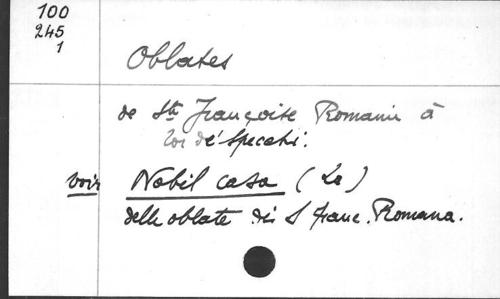 100
245
1
Oblates
de Ste Françoise Romaine à
Tor de' Specchi.
voir Nobil casa (La)
delle oblate di S. Franc. Romana.